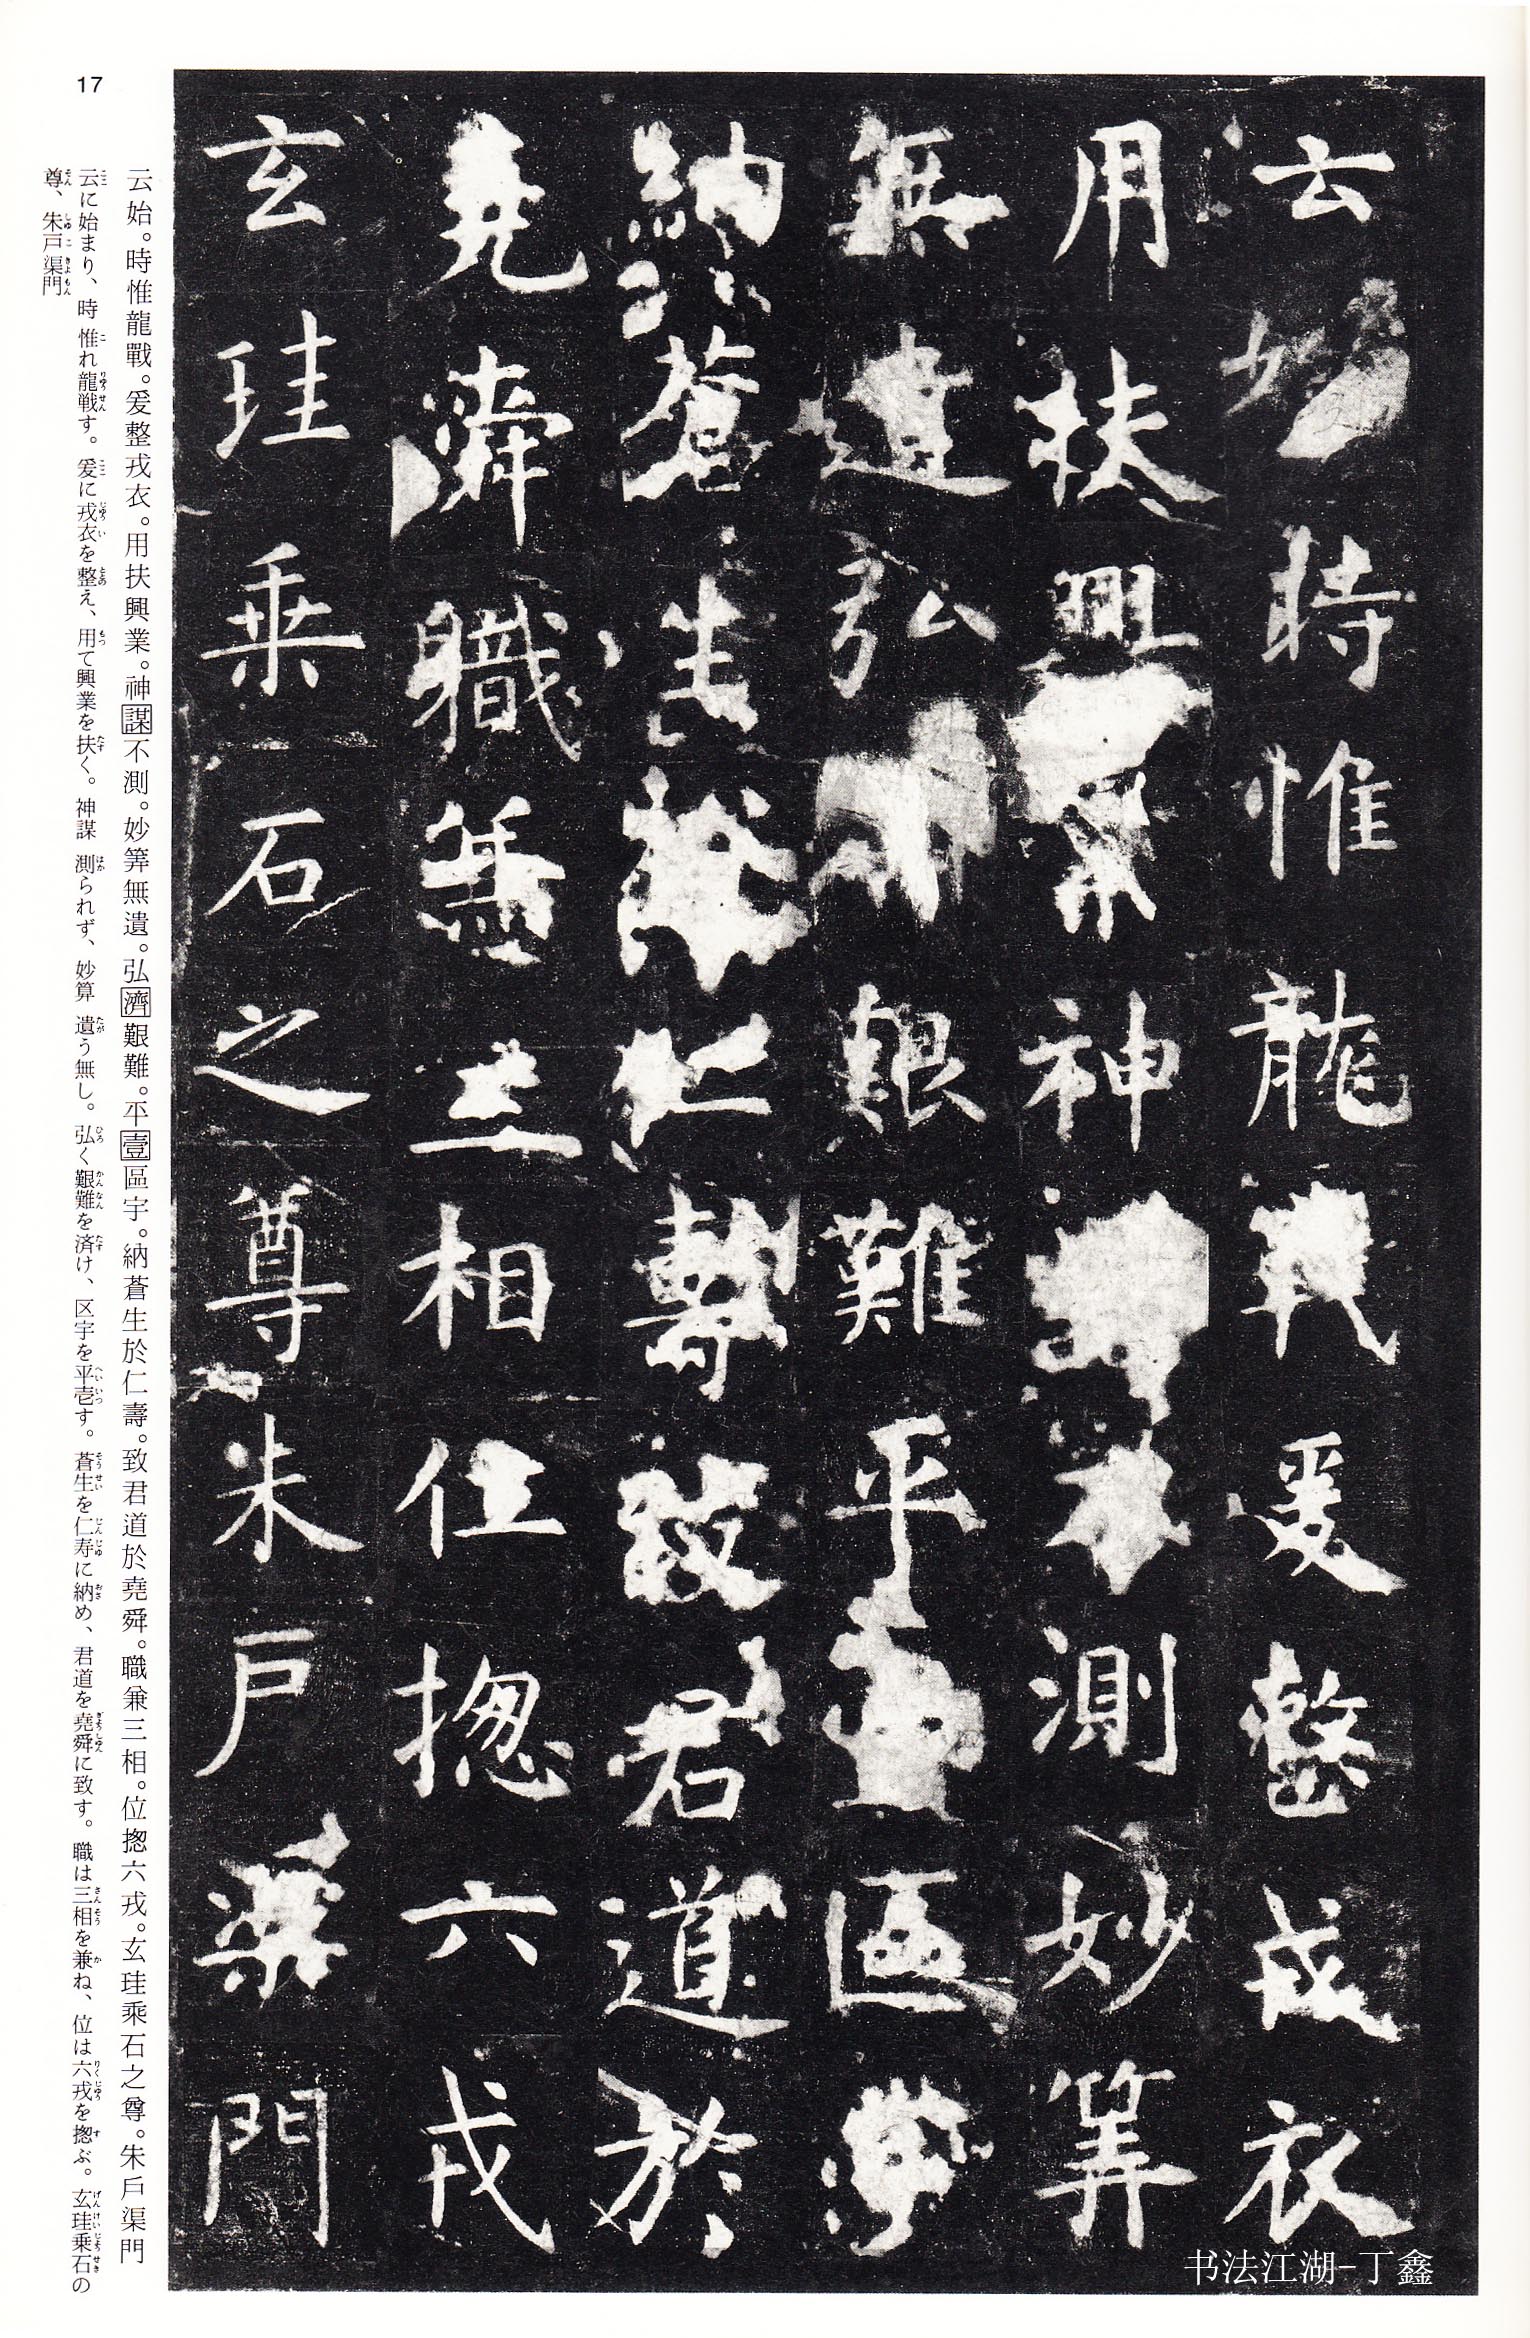 云始時惟龍戰爰整戎衣
用扶興業神不測妙筭
無遺弘艱難平區宇
納蒼生於仁壽致君道於
堯舜職兼三相位揔六戎
玄珪乗石之尊朱戶渠門
云始。時惟龍戰。爰整戎衣。用扶興業。神謀不測。妙筭無遺。弘濟艱難。平壹區宇。納蒼生於仁壽。致君道於堯舜。職兼三相。位揔六戎。玄珪乘石之尊。朱戶渠門
云に始まり、時惟れ龍戦す。爰に戎衣を整え、用て興業を扶く。神謀測られず、妙算遺う無し。弘く艱難を済け、区宇を平壱す。蒼生を仁寿に納め、君道を堯舜に致す。職は三相を兼ね、位は六戎を揔ぶ。玄珪乗石の
尊、朱戸渠門
17
书法江湖-丁鑫